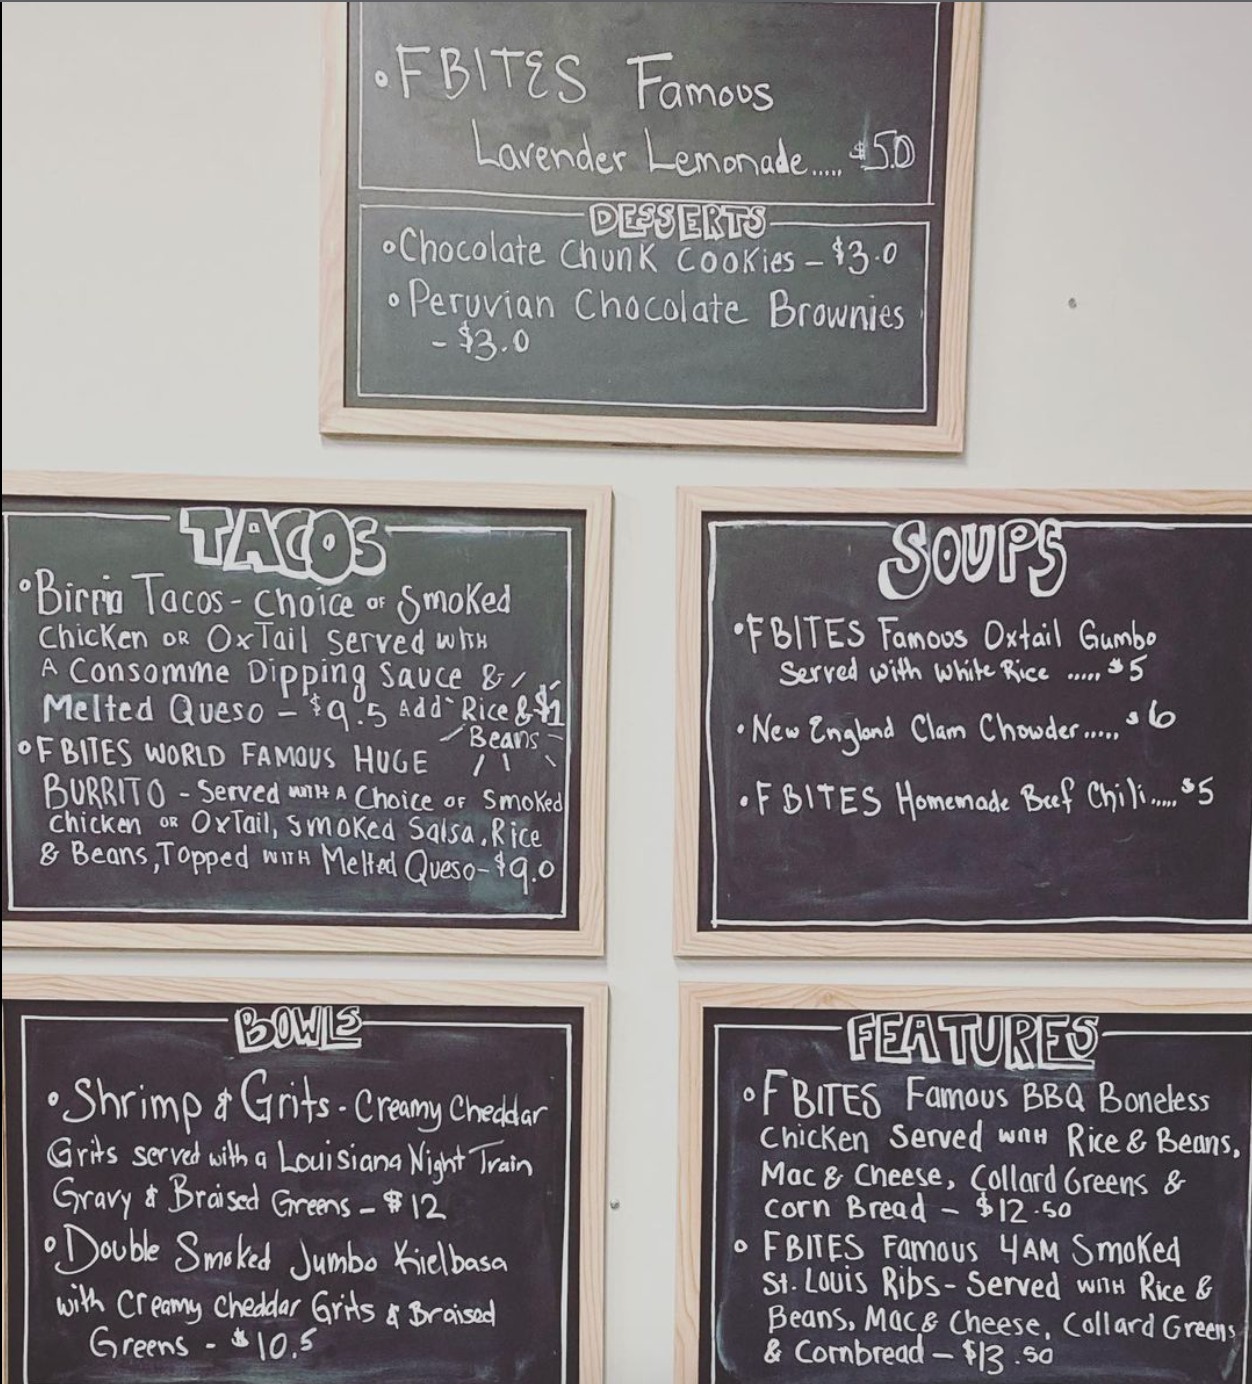 •FBITES Famous
Lavender Lemonade..... $5.0
DESSERTS
•Chocolate Chunk Cookies - $3.0
•Peruvian Chocolate Brownies
- $3.0
TACOS
•Birria Tacos - Choice OF Smoked
Chicken OR OxTail Served WITH
A Consomme Dipping Sauce &
Melted Queso - $9.5 Add Rice & $1
Beans
•FBITES WORLD FAMOUS HUGE
BURRITO - Served WITH A Choice OF Smoked
Chicken OR OxTail, Smoked Salsa, Rice
& Beans, Topped WITH Melted Queso - $9.0
SOUPS
•FBITES Famous Oxtail Gumbo
Served with White Rice ..... $5
•New England Clam Chowder..... $6
•FBITES Homemade Beef Chili..... $5
BOWLS
•Shrimp & Grits - Creamy Cheddar
Grits served with a Louisiana Night Train
Gravy & Braised Greens - $12
•Double Smoked Jumbo Kielbasa
with Creamy Cheddar Grits & Braised
Greens - $10.5
FEATURES
•FBITES Famous BBQ Boneless
Chicken Served WITH Rice & Beans,
Mac & Cheese, Collard Greens &
Corn Bread - $12.50
•FBITES Famous 4AM Smoked
St. Louis Ribs - Served WITH Rice &
Beans, Mac & Cheese, Collard Greens
& Cornbread - $13.50